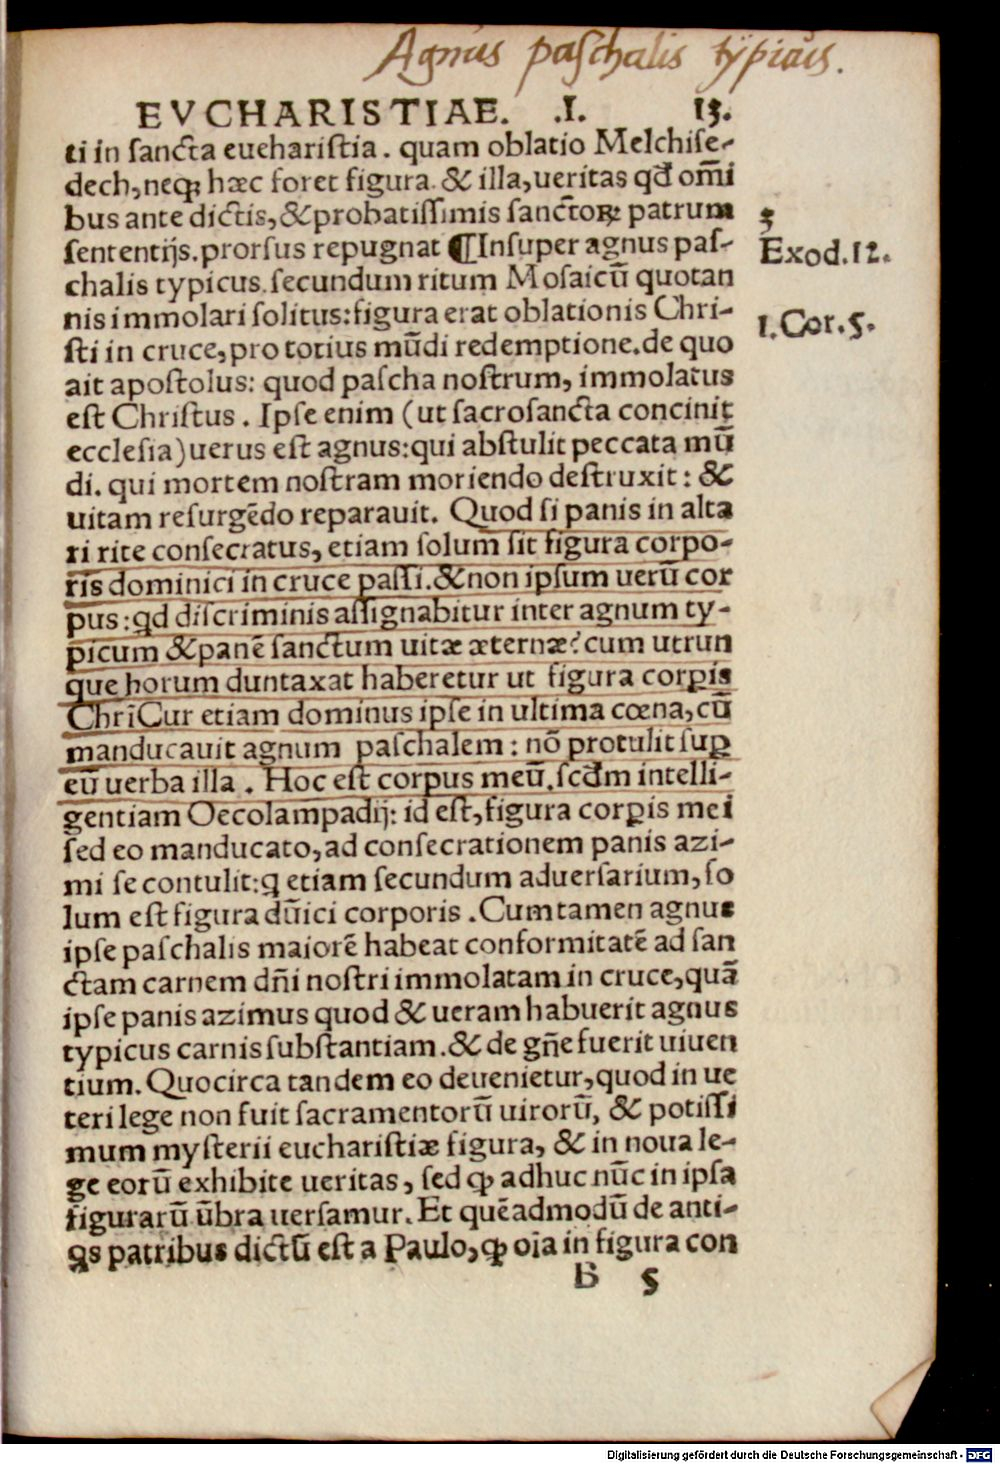 Agnus paschalis typicus.
EVCHARISTIAE. .I. 13.
ti in ſancta euehariſtia. quam oblatio Melchiſe-
dech, neqꝫ hæc foret figura. & illa, ueritas qđ om̄i
bus ante dictis, & probatiſſimis ſanctoꝝ patrum
ſententijs. prorſus repugnat ¶Inſuper agnus paſ-
chalis typicus. ſecundum ritum Moſaicū quotan
nis immolari ſolitus: figura erat oblationis Chri-
ſti in cruce, pro totius mūdi redemptione. de quo
ait apoſtolus: quod paſcha noſtrum, immolatus
eſt Chriſtus. Ipſe enim (ut ſacroſancta concinit
eccleſia) uerus eſt agnus: qui abſtulit peccata mū
di. qui mortem noſtram moriendo deſtruxit: &
uitam reſurgēdo reparauit. Quod ſi panis in alta
ri rite conſecratus, etiam ſolum ſit figura corpo-
ris dominici in cruce paſſi. & non ipſum uerū cor
pus: qd diſcriminis aſſignabitur inter agnum ty-
picum & panē ſanctum uitæ æternæ? cum utrun
que horum duntaxat haberetur ut figura corꝑis
Chrī Cur etiam dominus ipſe in ultima cœna, cū
manducauit agnum paſchalem: nō protulit ſuꝑ
eū uerba illa. Hoc eſt corpus meū. ſcđm intelli-
gentiam Oecolampadij: id eſt, figura corꝑis mei
ſed eo manducato, ad conſecrationem panis azi-
mi ſe contulit: q etiam ſecundum aduerſarium, ſo
lum eſt figura dn̄ici corporis. Cum tamen agnus
ipſe paſchalis maiorē habeat conformitatē ad ſan
ctam carnem dn̄i noſtri immolatam in cruce, quā
ipſe panis azimus quod & ueram habuerit agnus
typicus carnis ſubſtantiam. & de gn̄e fuerit uiuen
tium. Quocirca tandem eo deuenietur, quod in ue
teri lege non fuit ſacramentorū uirorū, & potiſſi
mum myſterii euchariſtiæ figura, & in noua le-
ge eorū exhibite ueritas, ſed ꝙ adhuc nūc in ipſa
figurarū ūbra uerſamur. Et quēadmodū de anti-
qs patribus dictū eſt a Paulo, ꝙ oīa in figura con
B 5
3
Exod. 12.
1. Cor. 5.
Digitalisierung gefördert durch die Deutsche Forschungsgemeinschaft - DFG